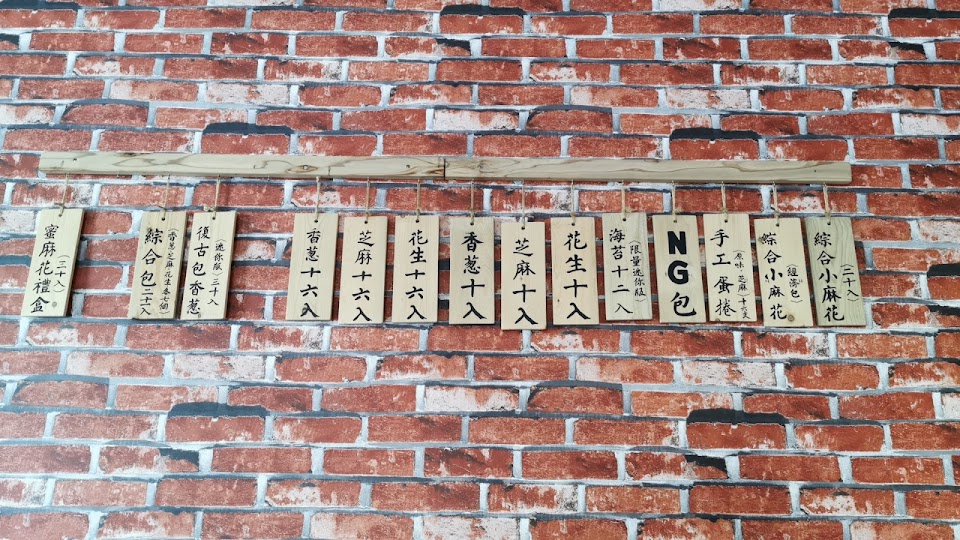 蜜麻花禮盒
(二十入)
綜合包(二十一入)
(香蔥、芝麻、花生各七個)
復古包香蔥
(迷你版)三十入
香蔥十六入
芝麻十六入
花生十六入
香蔥十入
芝麻十入
花生十入
海苔十二入
(限量迷你版)
NG包
手工蛋捲
(原味 芝麻 十二支)
綜合小麻花
(經濟包)
綜合小麻花
(二十入)